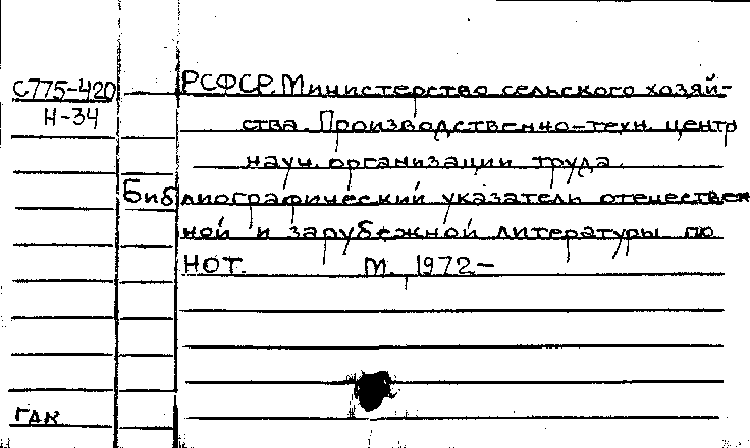 С775-420 РСФСР. Министерство сельского хозяй-
Н-34 ства. Производственно-техн. центр
науч. организации труда.
Библиографический указатель отечествен
ной и зарубежной литературы по
НОТ. М. 1972-
ГАК